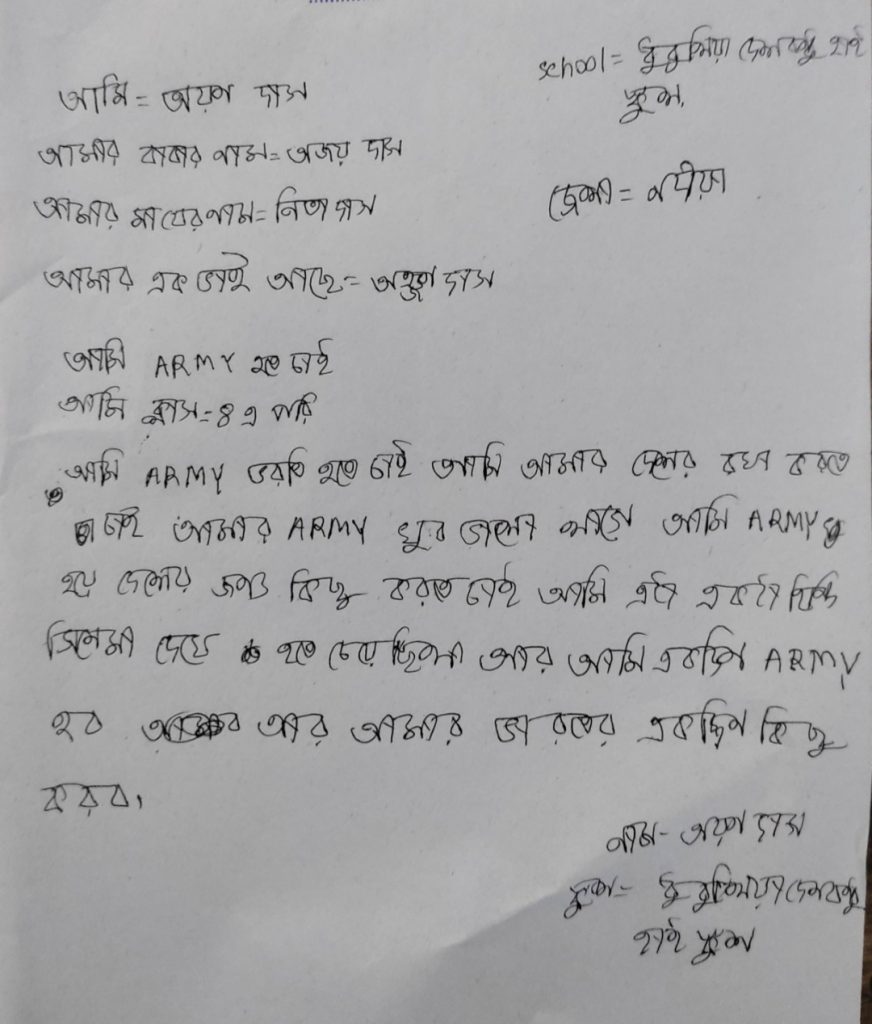 school = ধুবুলিয়া দেশবন্ধু হাই
স্কুল.
আমি = অয়ন দাস
আমার বাবার নাম = অজয় দাস
জেলা = নদীয়া
আমার মায়ের নাম = নিতা দাস
আমার এক ভাই আছে = দাস
আমি ARMY হতে চাই
আমি ক্লাস = ৪ এ পরি
আমি ARMY ভরতি হতে চাই আমি আমার দেশের রখা করতে
চাই আমার ARMY খুব ভালো লাগে আমি ARMY
হয়ে দেশের জন্য কিছু করতে চাই আমি এটা একটা হিন্দি
সিনেমা দেখে হতে চেয়েছিলাম আর আমি একদিন ARMY
হব আর আমার ভারতের একদিন কিছু
করব,
নাম - অয়ন দাস
স্কুল = ধুবুলিয়া দেশবন্ধু
হাই স্কুল